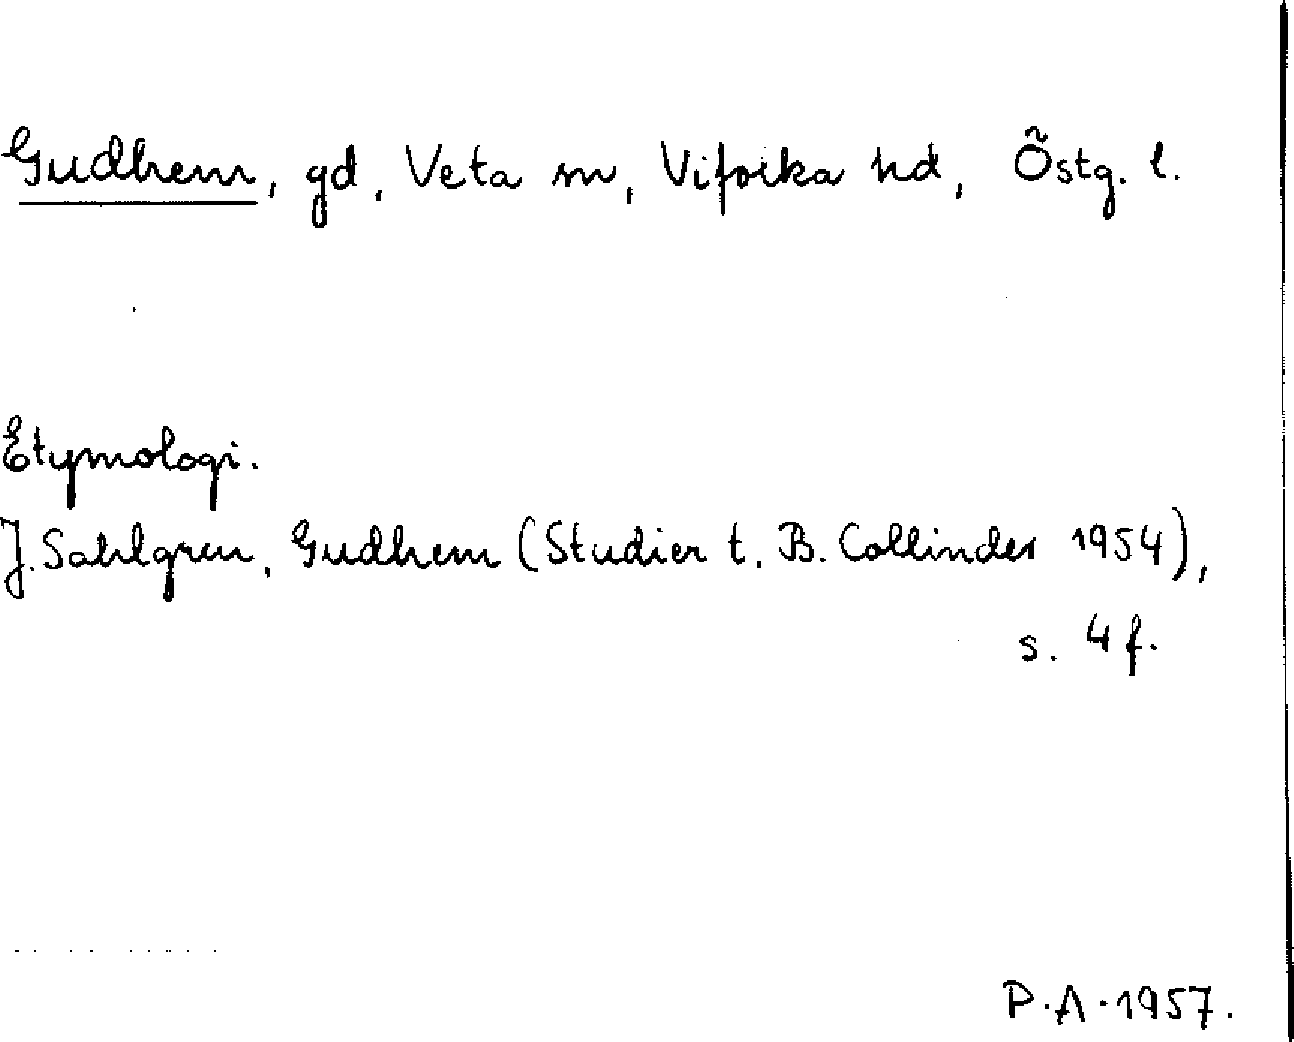 Gudhem, gd, Veta sn, Vifolka hd, Östg. l.
Etymologi.
J. Sahlgren, Gudhem (Studier t. B. Collinder 1954),
s. 4 f.
P.A. 1957.